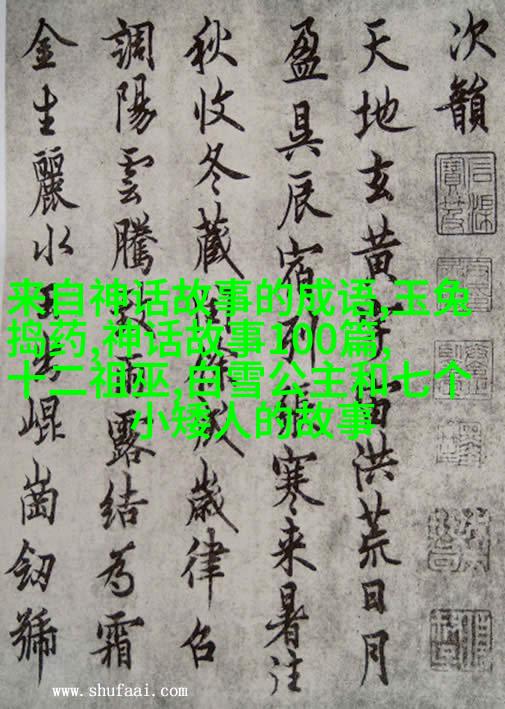 次韻
天地玄黄宇宙洪荒日月
盈昃辰宿列張寒来暑往
秋收冬藏閏餘成歲律召
調陽雲騰致雨露結為霜
金生麗水玉出崐崗劒號
来自神话故事的成语,玉兔
捣药,神话故事100篇,
十二祖巫,白雪公主和七个
小矮人的故事
www.shufaai.com